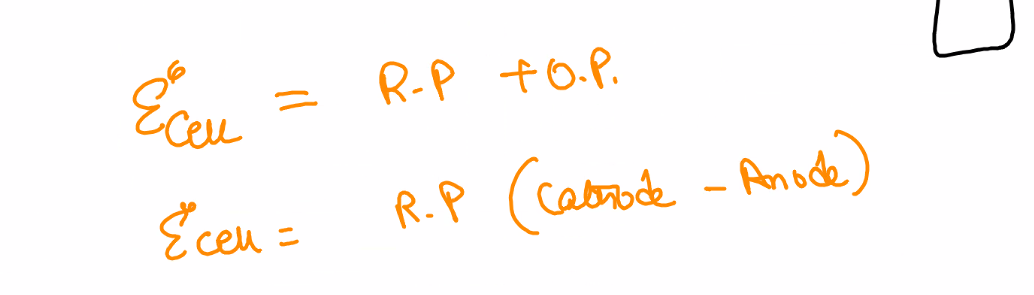 E°cell = R.P + O.P.
E°cell = R.P (Cathode - Anode)